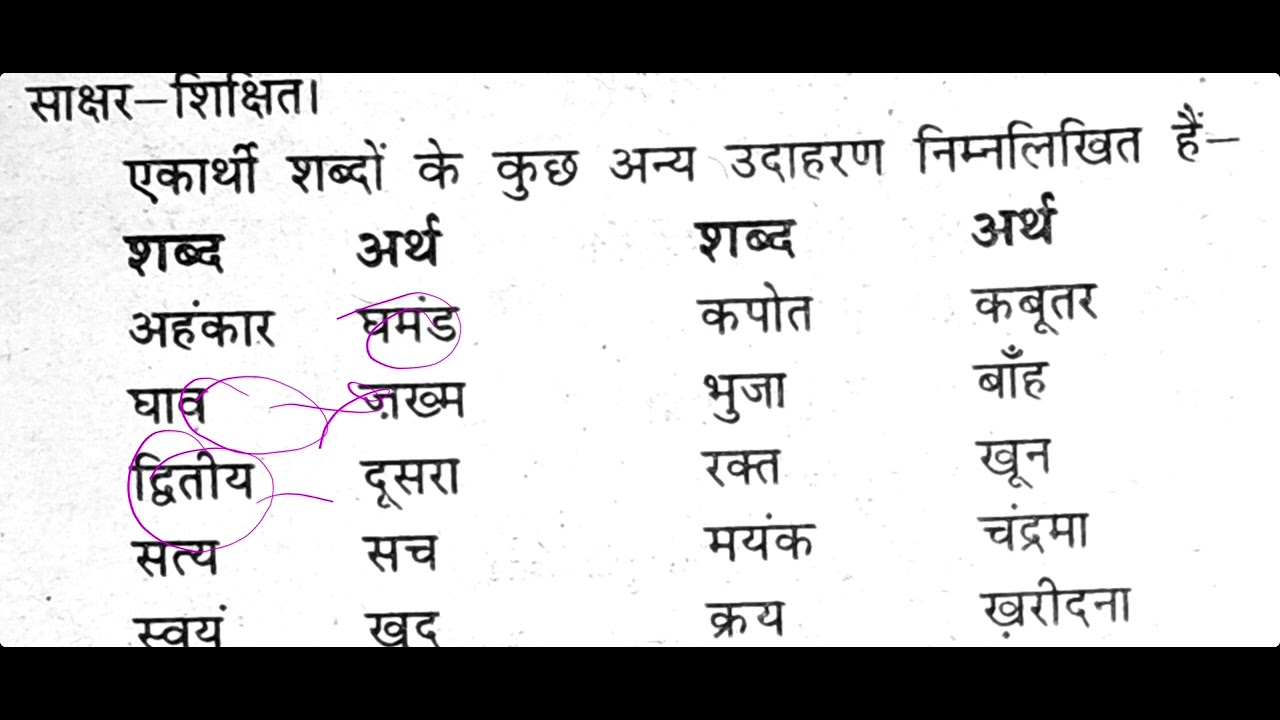 साक्षर–शिक्षित।
एकार्थी शब्दों के कुछ अन्य उदाहरण निम्नलिखित हैं–
शब्द अर्थ शब्द अर्थ
अहंकार घमंड कपोत कबूतर
घाव ज़ख्म भुजा बाँह
द्वितीय दूसरा रक्त खून
सत्य सच मयंक चंद्रमा
स्वयं खुद क्रय ख़रीदना